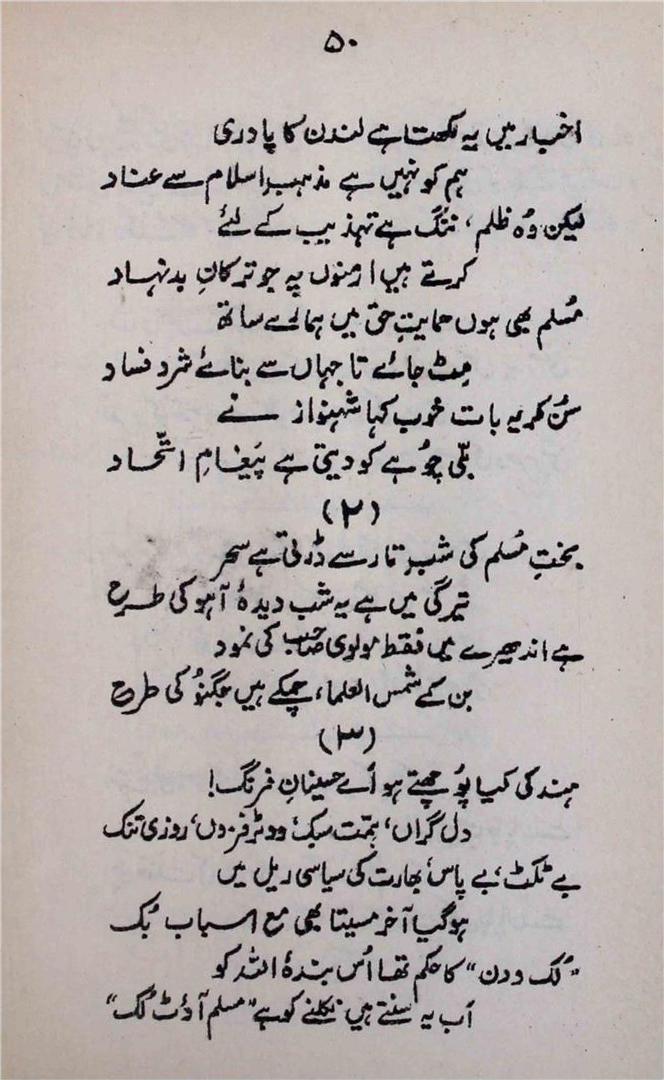 ۵۰
اخبار میں یہ لکھتا ہے لندن کا پادری
ہم کو نہیں ہے مذہبِ اسلام سے عناد
لیکن وُہ ظلم، ننگ ہے تہذیب کے لئے
کرتے ہیں ارمنوں پہ جو ترکانِ بدنہاد
مُسلم بھی ہوں حمایتِ حق میں ہمارے ساتھ
مِٹ جائے تا جہاں سے بنائے شر و فساد
سُن کر یہ بات خوب کہا شہنواز نے
بلّی چُوہے کو دیتی ہے پَیغامِ اتّحاد
(۲)
بختِ مُسلم کی شبِ تار سے ڈرتی ہے سحر
تیرگی میں ہے یہ شب دیدۂ آہو کی طرح
ہے اندھیرے میں فقط مولوی صاحب کی نمود
بن کے شمس العلماء، چمکے ہیں جگنُو کی طرح
(۳)
ہند کی کیا پوُچھتے ہو اُے حسینانِ فرنگ!
دل گراں، ہمّت سبک، ووٹر فزوں، روزی تنک
بے ٹکٹ، بے پاس، بھارت کی سیاسی ریل میں
ہو گیا آخر مسیتا بھی مع اسباب بُک
"لُک ودن" کا حکم تھا اُس بندۂ اللہ کو
اَب یہ سُنتے ہیں نکلنے کو ہے "مسلم آؤٹ لُک"